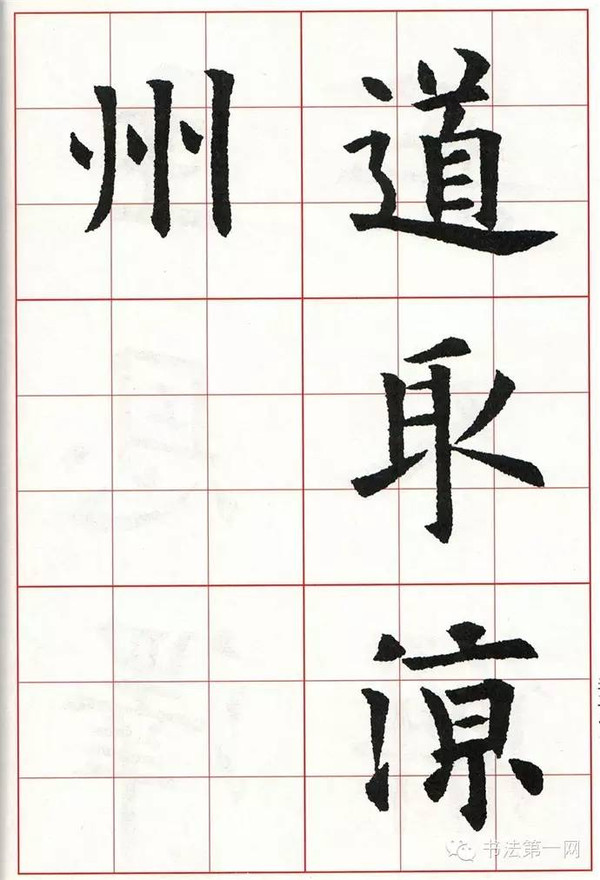 道取涼
州
书法第一网